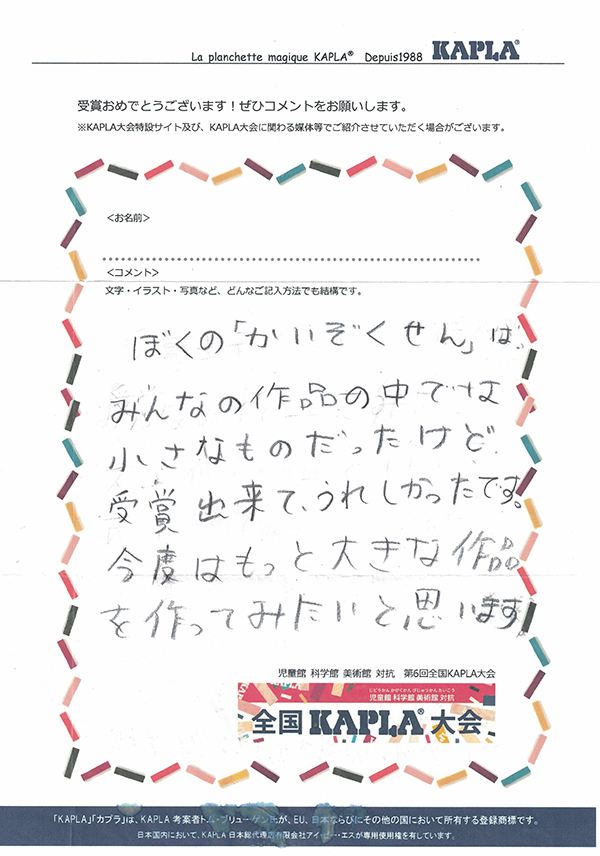 La planchette magique KAPLA® Depuis1988 KAPLA®
受賞おめでとうございます！ぜひコメントをお願いします。
※KAPLA大会特設サイト及び、KAPLA大会に関わる媒体等でご紹介させていただく場合がございます。
<お名前>
<コメント>
文字・イラスト・写真など、どんなご記入方法でも結構です。
ぼくの「かいぞくせん」は、
みんなの作品の中では
小さなものだったけど、
受賞出来て、うれしかったです。
今度はもっと大きな作品
を作ってみたいと思います
児童館 科学館 美術館 対抗 第6回全国KAPLA大会
じどうかん かがくかん びじゅつかん たいこう
児童館 科学館 美術館 対抗
全国 KAPLA® 大会
「KAPLA」「カプラ」は、KAPLA 考案者トム・ブリューゲン氏が、EU、日本ならびにその他の国において所有する登録商標です。
日本国内において、KAPLA 日本総代理店有限会社アイ・ピー・エスが専用使用権を有しています。